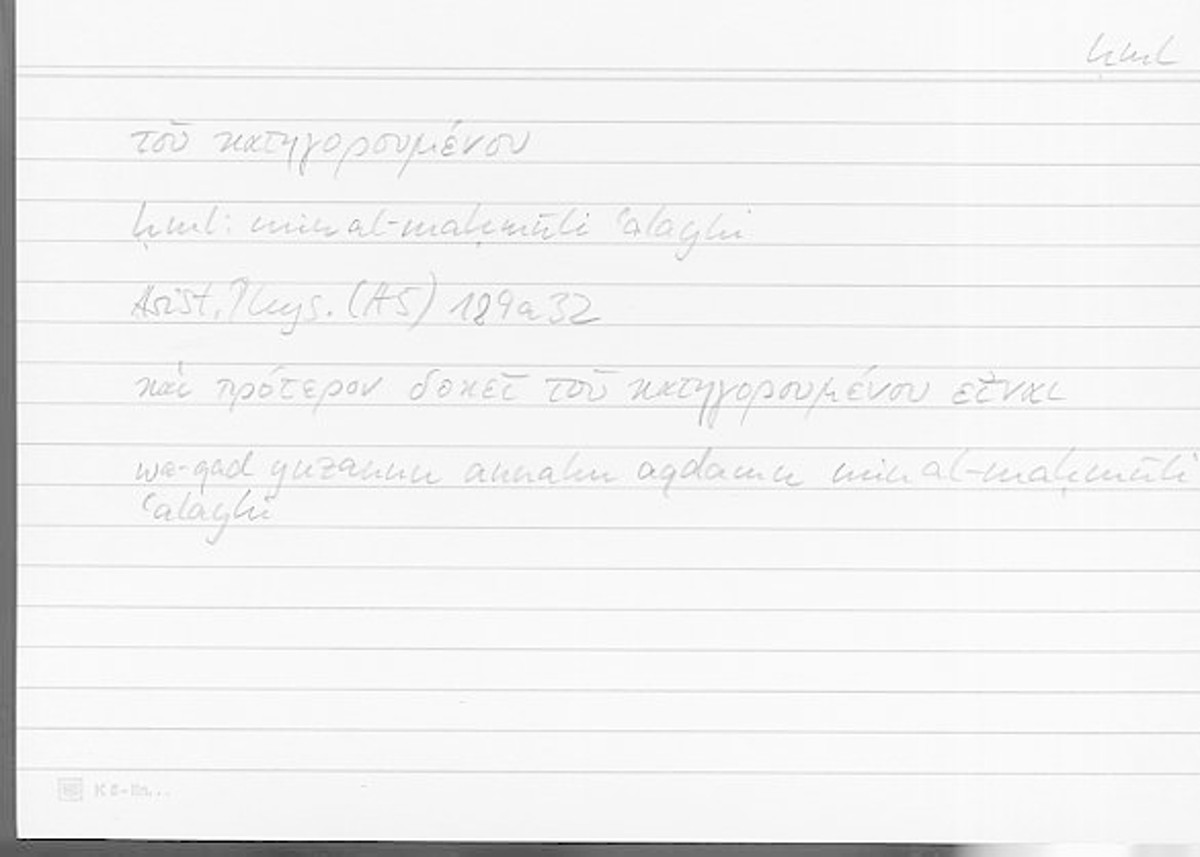 ḥml
τοῦ κατηγορουμένου
ḥml: min al-maḥmūli ʿalayhi
Arist. Phys. (A5) 189a32
καὶ πρότερον δοκεῖ τοῦ κατηγορουμένου εἶναι
wa-qad yuẓannu annahu aqdamu min al-maḥmūli
ʿalayhi